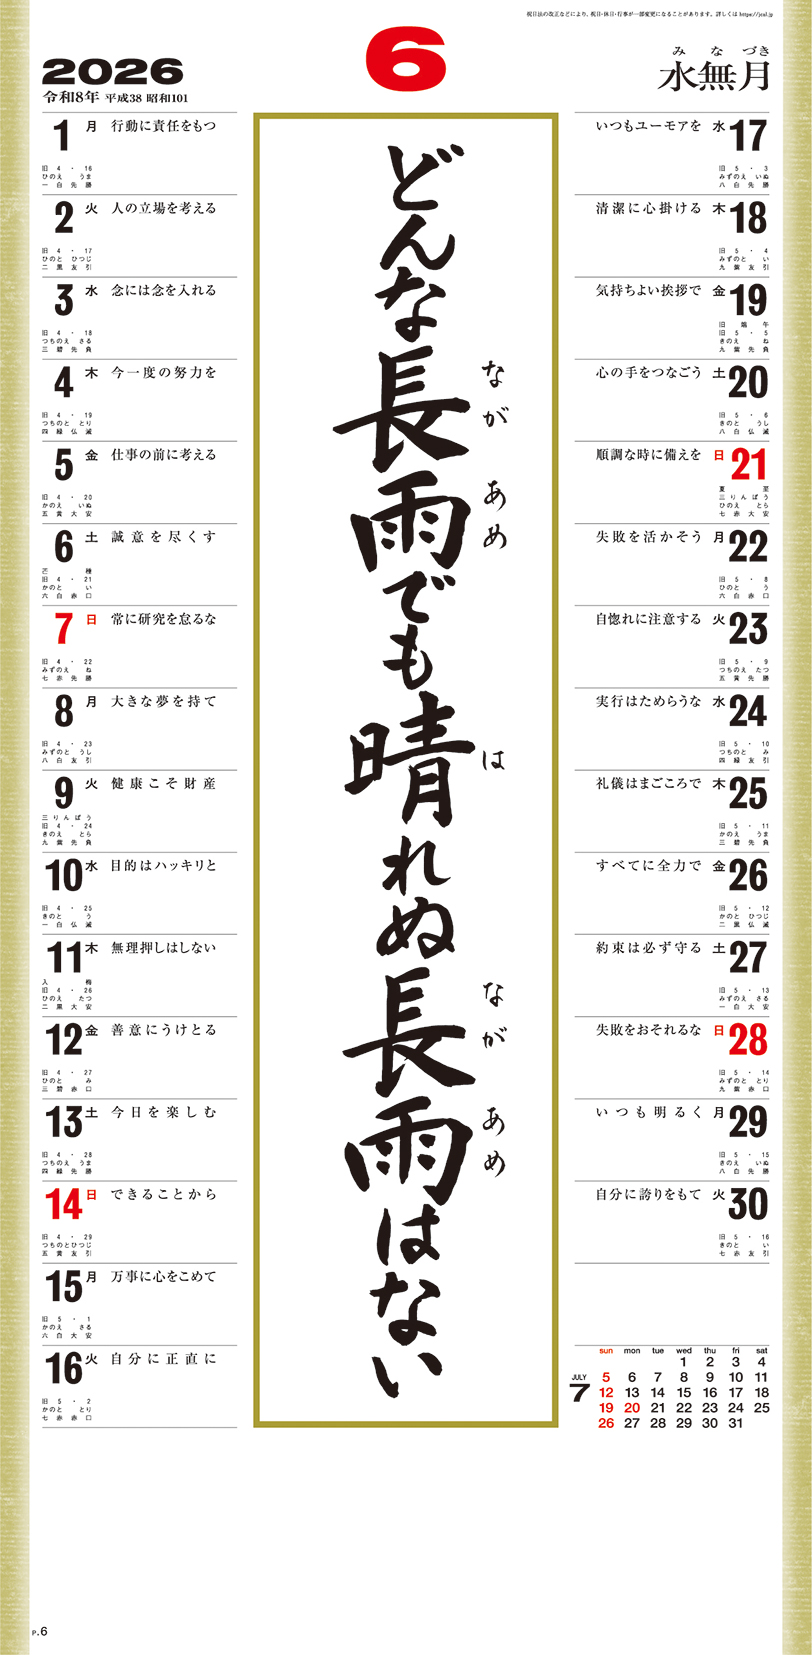 祝日法の改正などにより、祝日・休日・行事が一部変更になることがあります。詳しくは https://jcal.jp
2026
令和8年 平成38 昭和101
6
みなづき
水無月
1 月 行動に責任をもつ
旧4・16
ひのえ うま
一白先勝
2 火 人の立場を考える
旧4・17
ひのと ひつじ
二黒友引
3 水 念には念を入れる
旧4・18
つちのえ さる
三碧先負
4 木 今一度の努力を
旧4・19
つちのと とり
四緑仏滅
5 金 仕事の前に考える
旧4・20
かのえ いぬ
五黄大安
6 土 誠意を尽くす
芒種
旧4・21
かのと い
六白赤口
7 日 常に研究を怠るな
旧4・22
みずのえ ね
七赤先勝
8 月 大きな夢を持て
旧4・23
みずのと うし
八白友引
9 火 健康こそ財産
三りんぼう
旧4・24
きのえ とら
九紫先負
10 水 目的はハッキリと
旧4・25
きのと う
一白仏滅
11 木 無理押しはしない
入梅
旧4・26
ひのえ たつ
二黒大安
12 金 善意にうけとる
旧4・27
ひのと み
三碧赤口
13 土 今日を楽しむ
旧4・28
つちのえ うま
四緑先勝
14 日 できることから
旧4・29
つちのとひつじ
五黄友引
15 月 万事に心をこめて
旧5・1
かのえ さる
六白大安
16 火 自分に正直に
旧5・2
かのと とり
七赤赤口
どんな長雨でも晴れぬ長雨はない
なが あめ
は
なが あめ
いつもユーモアを 水 17
旧5・3
みずのえ いぬ
八白先勝
清潔に心掛ける 木 18
旧5・4
みずのと い
九紫友引
気持ちよい挨拶で 金 19
旧端午
旧5・5
きのえ ね
九紫先負
心の手をつなごう 土 20
旧5・6
きのと うし
八白仏滅
順調な時に備えを 日 21
夏至
三りんぼう
ひのえ とら
七赤大安
失敗を活かそう 月 22
旧5・8
ひのと う
六白赤口
自惚れに注意する 火 23
旧5・9
つちのえ たつ
五黄先勝
実行はためらうな 水 24
旧5・10
つちのと み
四緑友引
礼儀はまごころで 木 25
旧5・11
かのえ うま
三碧先負
すべてに全力で 金 26
旧5・12
かのと ひつじ
二黒仏滅
約束は必ず守る 土 27
旧5・13
みずのえ さる
一白大安
失敗をおそれるな 日 28
旧5・14
みずのと とり
九紫赤口
いつも明るく 月 29
旧5・15
きのえ いぬ
八白先勝
自分に誇りをもて 火 30
旧5・16
きのと い
七赤友引
JULY
7
sun mon tue wed thu fri sat
1 2 3 4
5 6 7 8 9 10 11
12 13 14 15 16 17 18
19 20 21 22 23 24 25
26 27 28 29 30 31
P.6